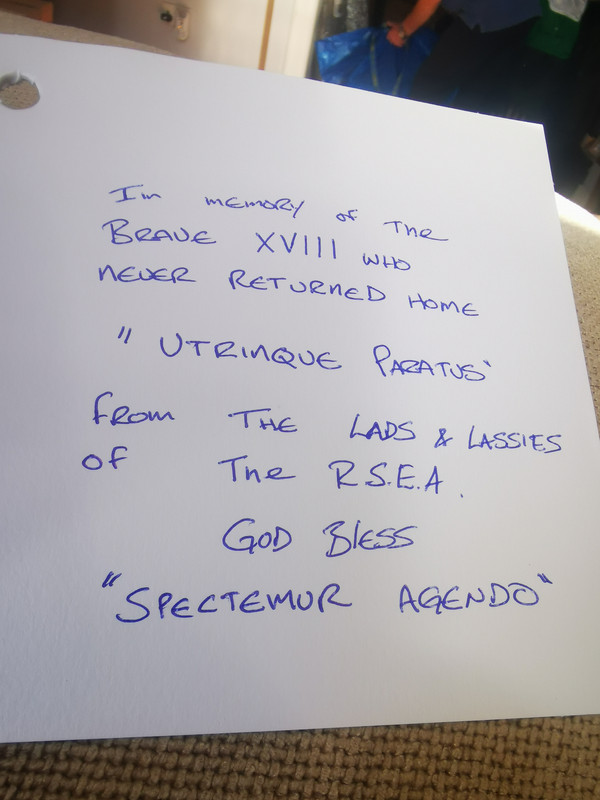 In memory of the
Brave XVIII who
never returned home
" Utrinque Paratus"
From The Lads & Lassies
of The R.S.E.A.
God Bless
"Spectemur Agendo"